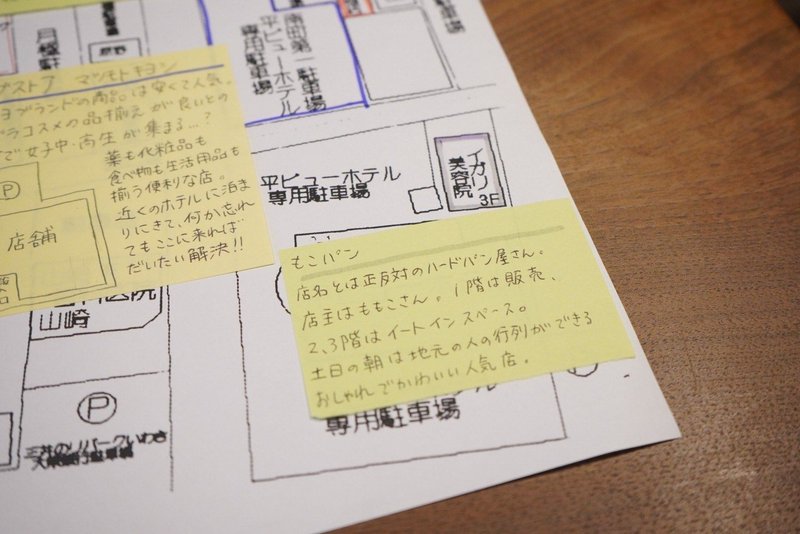 月極駐
車場
平ビューホテル
専用駐車場
南町第一駐車場
マツモトキヨシ
ブランドの商品は安くて人気。
プラコスメの品揃えが良いとの
で女子中・高生が集まる…?
薬も化粧品も
食べ物も生活用品も
揃う便利な店。
近くのホテルに泊ま
りにきて、何か忘れ
てもここに来れば
だいたい解決!!
P
店舗
平ビューホテル
専用駐車場
イガリ
美容院
3F
もこパン
店名とは正反対のハードパン屋さん。
店主はももこさん。1階は販売、
2、3階はイートインスペース。
土日の朝は地元の人の行列ができる
おしゃれでかわいい人気店。
専用駐車場
院
山崎
P
三井のリパークいわき